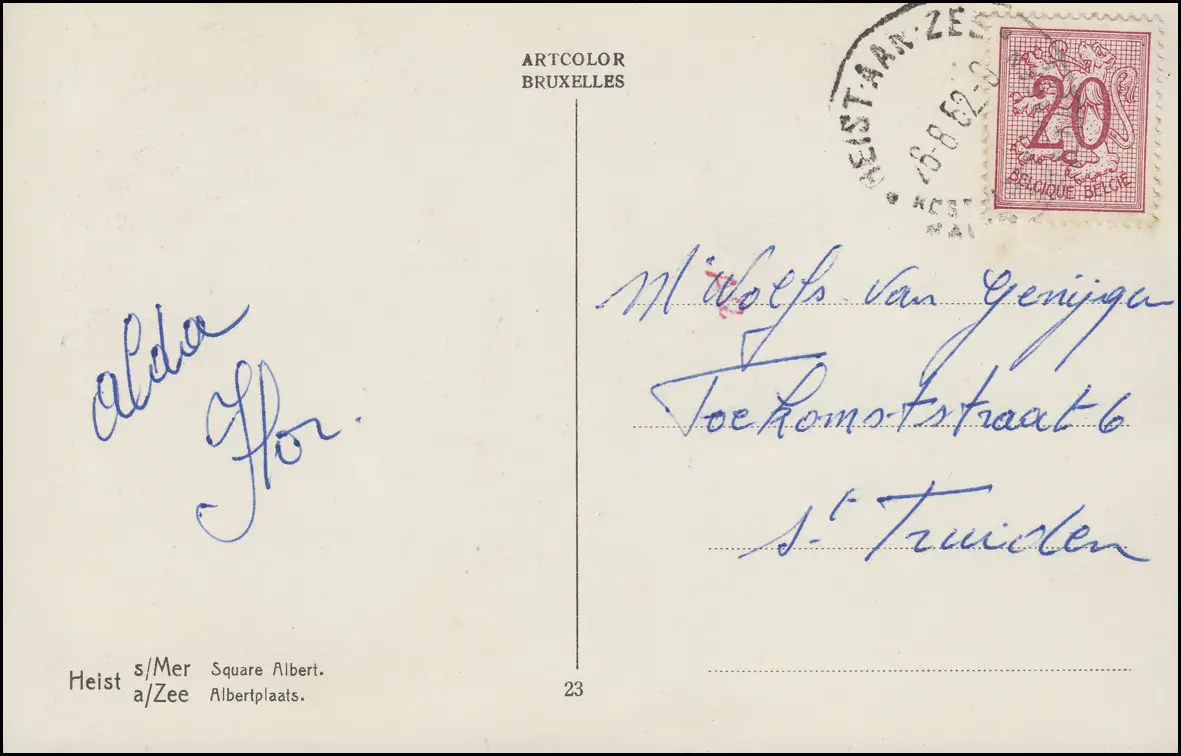 ARTCOLOR
BRUXELLES
HEIST-AAN-ZEE
26-8-52
20
BELGIQUE BELGIË
Mr Wolfs van
Toekomststraat 6
St Truiden
alda
Flor.
Heist s/Mer Square Albert.
a/Zee Albertplaats.
23